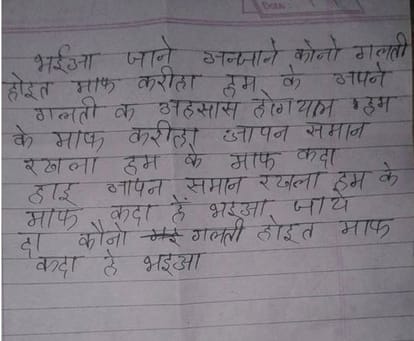 भईआ जाने अनजाने कोनो गलती
होइत माफ करीहा हम के अपने
गलती क अहसास होगयाल हम
के माफ करीहा आपन समान
रखला हम के माफ कदा
हाइ आपन समान रखला हम के
माफ कदा हे भइआ जाय
दा कौनो गलती होइत माफ
कदा हे भइआ